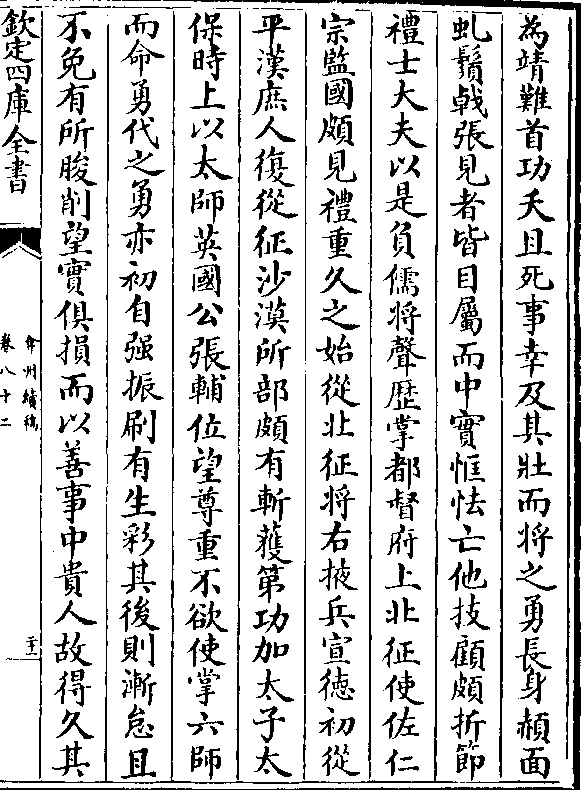 為靖難首功夭且死事幸及其壯而將之勇長身頳面
虬鬚戟張見者皆目屬而中實恇怯亡他技顧頗折節
禮士大夫以是負儒將聲歴掌都督府上北征使佐仁
宗監國頗見禮重久之始從北征將右掖兵宣徳初從
平漢庶人復從征沙漠所部頗有斬獲第功加太子太
保時上以太師英國公張輔位望尊重不欲使掌六師
而命勇代之勇亦初自强振刷有生彩其後則漸怠且
不免有所朘削望實俱損而以善事中貴人故得久其
欽定四庫全書
弇州續稿
卷八十二